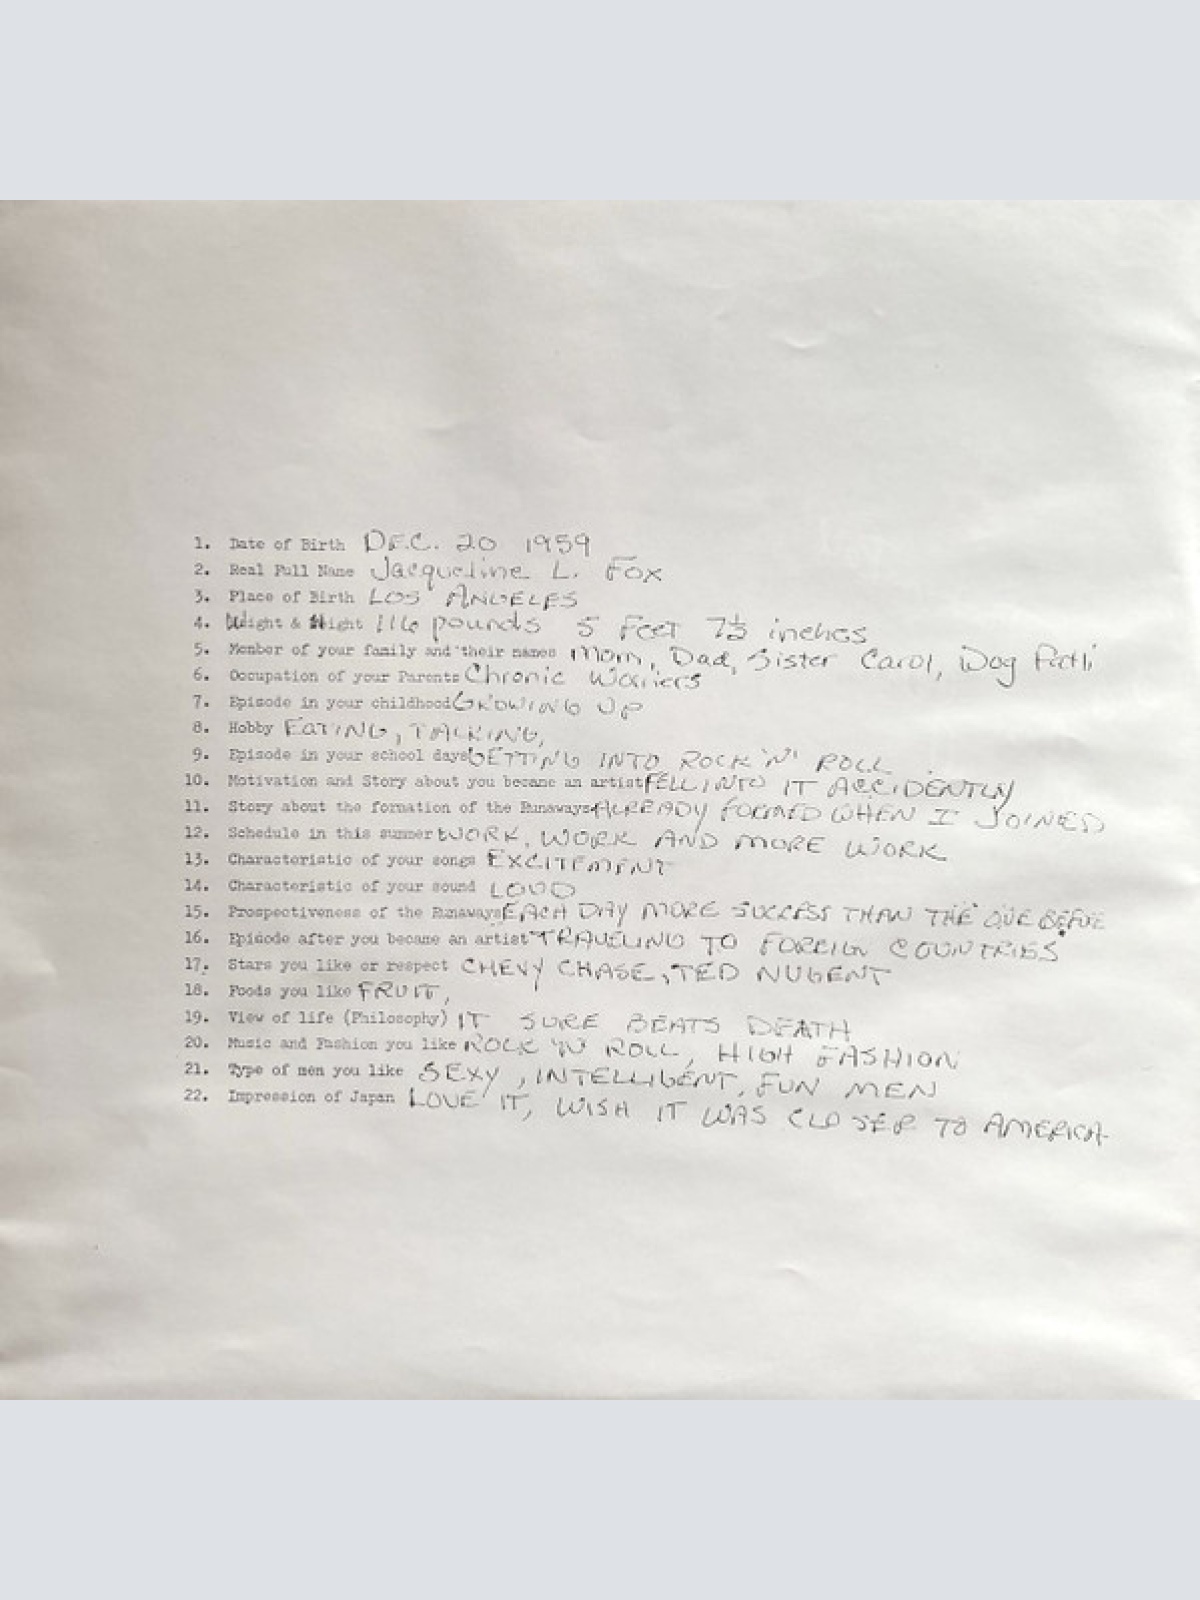 1. Date of Birth DEC. 20 1959
2. Real Full Name Jacqueline L. Fox
3. Place of Birth LOS ANGELES
4. Weight & Hight 116 pounds 5 Feet 7½ inches
5. Member of your family and their names Mom, Dad, Sister Carol, Dog
6. Occupation of your Parents Chronic Worriers
7. Episode in your childhood GROWING UP
8. Hobby EATING, TALKING,
9. Episode in your school days GETTING INTO ROCK 'N' ROLL
10. Motivation and Story about you became an artist FELL INTO IT ACCIDENTLY
11. Story about the formation of the Runaways ALREADY FORMED WHEN I JOINED
12. Schedule in this summer WORK, WORK AND MORE WORK
13. Characteristic of your songs EXCITEMENT
14. Characteristic of your sound LOUD
15. Prospectiveness of the Runaways EACH DAY MORE SUCCESS THAN THE ONE BEFORE
16. Episode after you became an artist TRAVELING TO FOREIGN COUNTRIES
17. Stars you like or respect CHEVY CHASE, TED NUGENT
18. Foods you like FRUIT,
19. View of life (Philosophy) IT SURE BEATS DEATH
20. Music and Fashion you like ROCK 'N' ROLL, HIGH FASHION
21. Type of men you like SEXY, INTELLIGENT, FUN MEN
22. Impression of Japan LOVE IT, WISH IT WAS CLOSER TO AMERICA